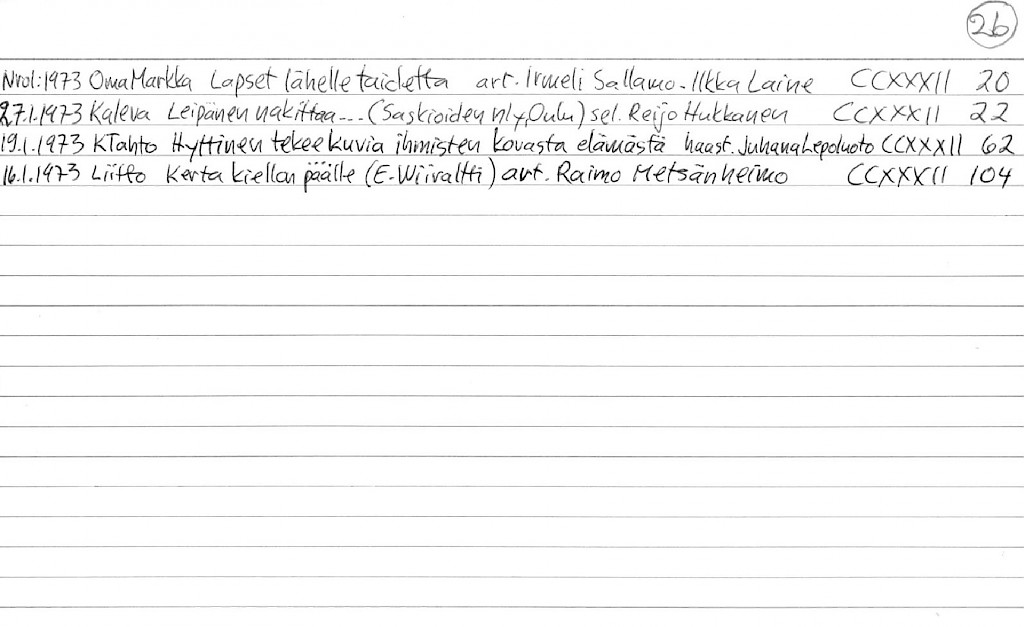 26
Nro1:1973 OmaMarkka Lapset lähelle taidetta art. Irmeli Sallamo - Ilkka Laine CCXXXII 20
27.1.1973 Kaleva Leipänen nakittaa--- (Saskioiden nly, Oulu) sel. Reijo Hukkanen CCXXXII 22
19.1.1973 KTahto Hyttinen tekee kuvia ihmisten kovasta elämästä haast. Juhana Lepoluoto CCXXXII 62
16.1.1973 Liitto Kerta kiellon päälle (E. Wiiraltti) art. Raimo Metsänheimo CCXXXII 104